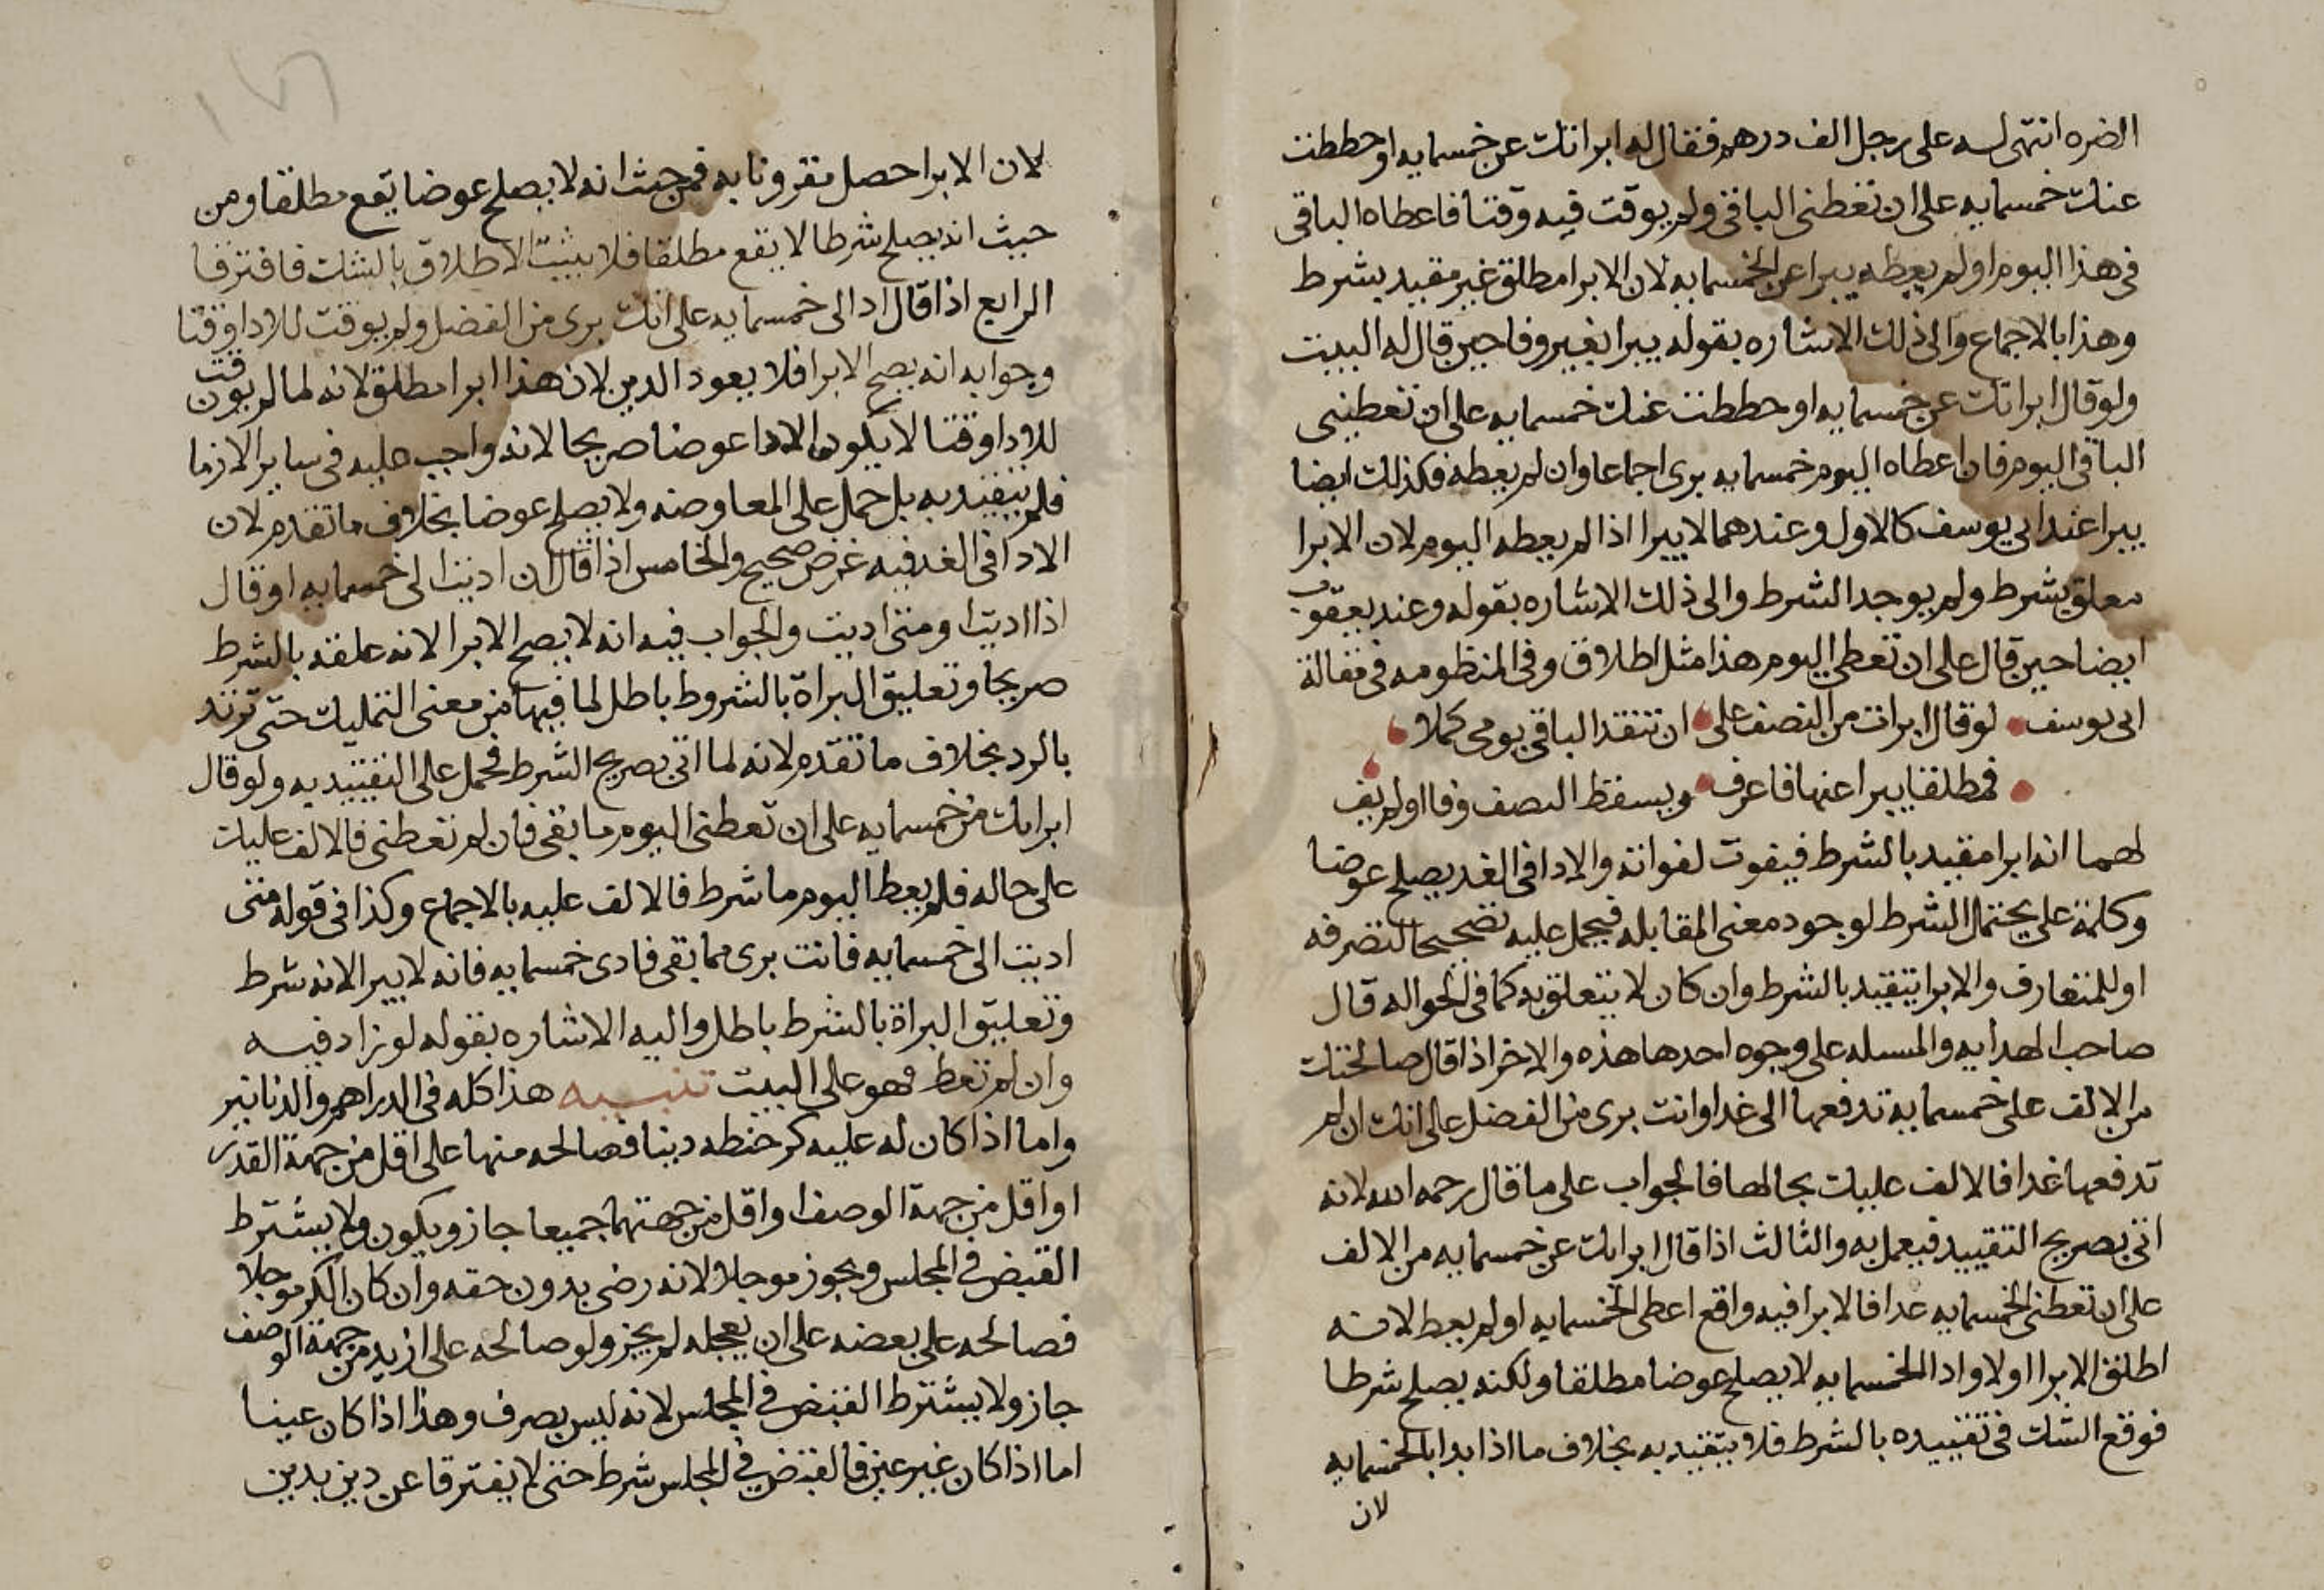 الضره انتهى له على رجل الف درهم فقال له ابراتك عن خمسمايه او حططت
عنك خمسمايه على ان تعطنى الباقى ولم يوقت فيه وقتا فاعطاه الباقى
فى هذا اليوم او لم يعطه يبرا عن الخمسمايه لان الابرا مطلق غير مقيد بشرط
وهذا بالاجماع والى ذلك الاشاره بقوله يبرا بغير وفا حين قال له البيت
ولو قال ابراتك عن خمسمايه او حططت عنك خمسمايه على ان تعطينى
الباقى اليوم فان اعطاه اليوم خمسمايه برى اجماعا وان لم يعطه فكذلك ايضا
يبرا عند ابى يوسف كالاول وعندهما لا يبرا اذا لم يعطه اليوم لان الابرا
معلق بشرط ولم يوجد الشرط والى ذلك الاشاره بقوله وعند يعقوب
ايضا حين قال على ان تعطى اليوم هذا مثل اطلاق وفى المنظومه فى مقالة
ابى يوسف لو قال ابرات من النصف على ان تنقد الباقى يومى كملا
فمطلقا يبرا عنها فاعرف ويسقط النصف وفا او لم يف
لهما انه ابرا مقيد بالشرط فيفوت لفواته والادا فى الغد يصلح عوضا
وكلمة على يحتمل الشرط لوجود معنى المقابله فيحمل عليه تصحيحا لتصرفه
او للمتعارف والابرا يتقيد بالشرط وان كان لا يتعلق به كما فى الحواله قال
صاحب الهدايه والمسله على وجوه احدها هذه والاخر اذا قال صالحتك
من الالف على خمسمايه تدفعها الى غدا وانت برى من الفضل على انك ان لم
تدفعها غدا فالالف عليك بحالها فالجواب على ما قال رحمه الله لانه
اتى بصريح التقييد فيعمل به والثالث اذا قال ابراتك عن خمسمايه من الالف
على ان تعطنى الخمسمايه غدا فالابرا فيه واقع اعطى الخمسمايه او لم يعط لانه
اطلق الابرا اولا وادا الخمسمايه لا يصلح عوضا مطلقا ولكنه يصلح شرطا
فوقع الشك فى تقييده بالشرط فلا يتقيد به بخلاف ما اذا بدا بالخمسمايه
لان
لان الابرا حصل مقرونا به فمن حيث انه لا يصلح عوضا يقع مطلقا ومن
حيث انه يصلح شرطا لا يقع مطلقا فلا يثبت الاطلاق بالشك فافترقا
الرابع اذا قال اد الى خمسمايه على انك برى من الفضل ولم يوقت للادا وقتا
وجوابه انه يصح الابرا فلا يعود الدين لان هذا ابرا مطلق لانه لما لم يوقت
للادا وقتا لا يكون الادا عوضا صريحا لانه واجب عليه فى ساير الازما
فلم يتقيد به بل حمل على المعاوضه ولا يصلح عوضا بخلاف ما تقدم لان
الادا فى الغد فيه غرض صحيح والخامس اذا قال ان اديت الى خمسمايه او قال
اذا اديت او متى اديت والجواب فيه انه لا يصح الابرا لانه علقه بالشرط
صريحا وتعليق البراة بالشروط باطل لما فيها من معنى التمليك حتى ترتد
بالرد بخلاف ما تقدم لانه لما اتى بصريح الشرط فحمل على التقييد به ولو قال
ابراتك من خمسمايه على ان تعطنى اليوم ما بقى فان لم تعطنى فالالف عليك
على حاله فلم يعط اليوم ما شرط فالالف عليه بالاجماع وكذا فى قوله متى
اديت الى خمسمايه فانت برى مما بقى فادى خمسمايه فانه لا يبرا لانه شرط
وتعليق البراة بالشرط باطل واليه الاشاره بقوله لو زاد فيه
وان لم تعط فهو على البيت تنبيه هذا كله فى الدراهم والدنانير
واما اذا كان له عليه كر حنطه دينا فصالحه منها على اقل من جهة القدر
او اقل من جهة الوصف او اقل من جهتهما جميعا جاز ويكون ولا يشترط
القبض فى المجلس ويجوز موجلا لانه رضى بدون حقه وان كان الكر موجلا
فصالحه على بعضه على ان يعجله لم يجز ولو صالحه على ازيد من جهة الوصف
جاز ولا يشترط القبض فى المجلس لانه ليس بصرف وهذا اذا كان عينا
اما اذا كان غير عين فالقبض فى المجلس شرط حتى لا يفترقا عن دين بدين